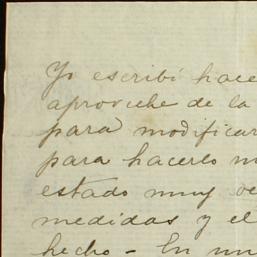 Yo escribí hace
aproveche de la
para modificar
para hacerlo m
estado muy oc
medidas y el
hecho - En un